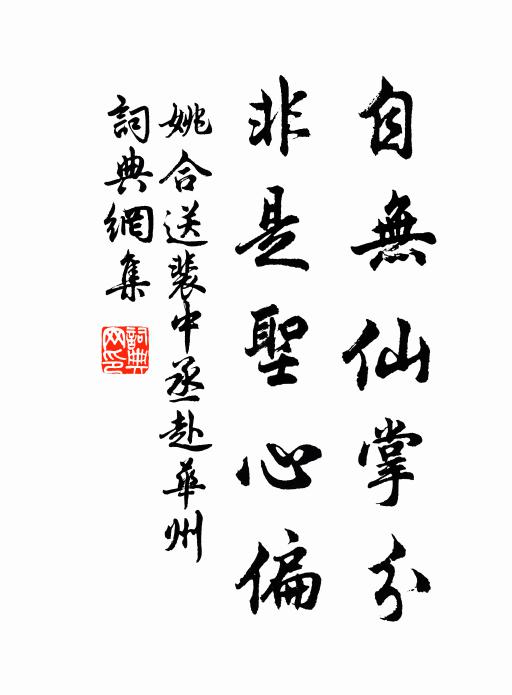 自無仙掌分
非是聖心偏
姚合送裴中丞赴華州
詞典網集
詞典網印